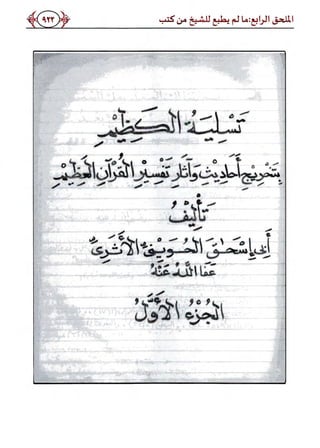 الملحق الرابع:ما لم يطبع للشيخ من كتب
٩٢٢
تَسْلِيَةُ الكَظِيْمِ
بِتَخْرِيْجِ أَحَادِيْثِ وَآثَارِ تَفْسِيْرِ القُرْآنِ العَظِيْمِ
تَأْلِيْفُ
أَبِي إِسْحَاقَ الحُوَيْنِيِّ الأَثَرِيِّ
عَفَا اللهُ عَنْهُ
الجُزْءُ الأَوَّلُ